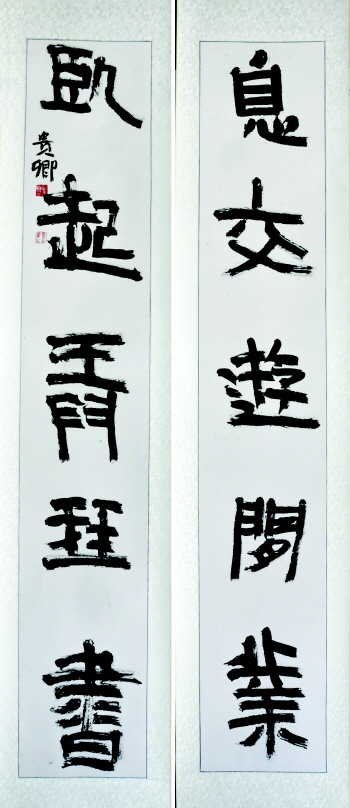 息交遊閒業
臥起弄琴書
貴卿